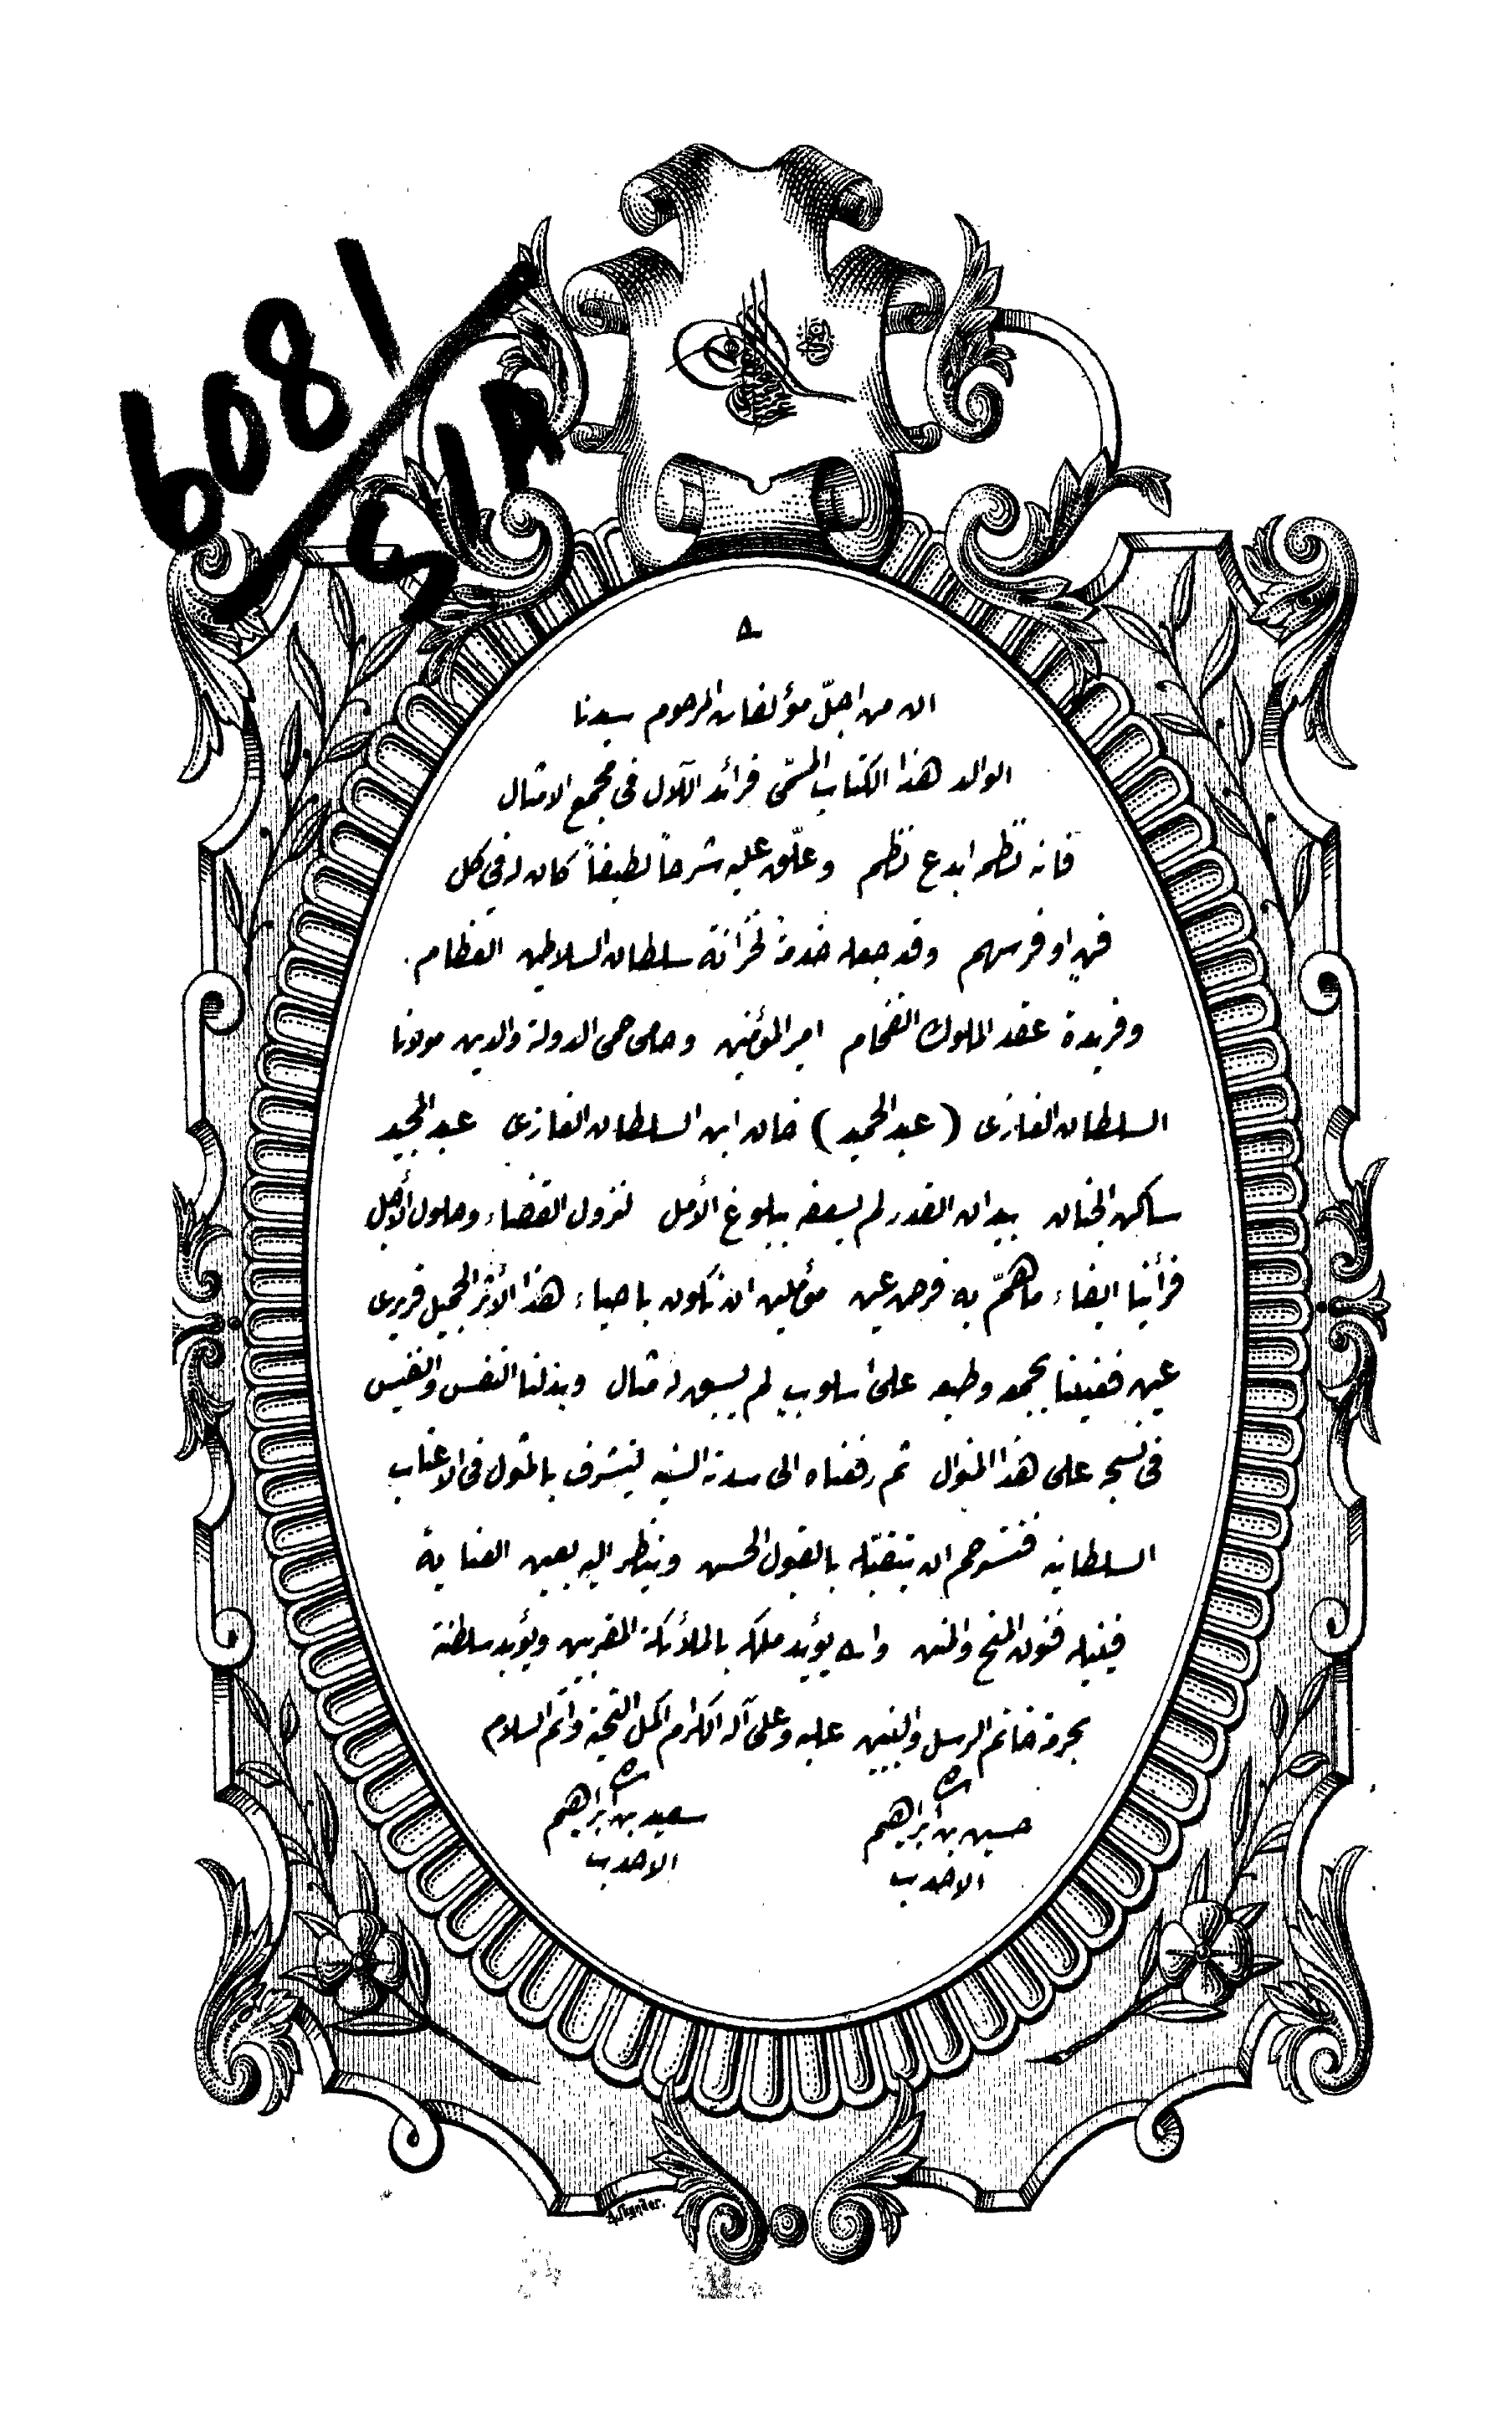 6081
SIA
ان من اجلّ مؤلفات المرحوم سيدنا
الوالد هذا الكتاب المسمّى فرائد اللآل في مجمع الامثال
فانه نظمه ابدع نظم وعلّق عليه شرحاً لطيفاً كان له في كل
فنٍ اوفر سهم وقد جعله خدمةً لخزانة سلطان السلاطين العظام
وفريدة عقد الملوك الفخام امير المؤمنين وحامى حمى الدولة والدين مولانا
السلطان الغازى (عبد الحميد) خان ابن السلطان الغازى عبد المجيد
ساكن الجنان بيد ان القدر لم يسعفه ببلوغ الأمل لنزول القضاء وحلول الأجل
فرأينا ايفاء ما همّ به فرض عين مؤملين ان نكون باحياء هذا الأثر الجميل قريرى
عين فعنينا بجمعه وطبعه على اسلوبٍ لم يسبق له مثال وبذلنا النفس والنفيس
فى نسجه على هذا المنوال ثم رفعناه الى سدته السنيه ليتشرف بالمثول فى الاعتاب
السلطانيه فنسترحم ان يتقبّله بالقبول الحسن وينظر اليه بعين العناية
فينيله فنون المنح والمنن والله يؤيد ملكه بالملائكة المقربين ويؤبد سلطنته
بحرمة خاتم الرسل والنبيين عليه وعلى آله الكرام اكمل التحية واتم السلام
حسين بن ابراهيم
الاحدب
سعيد بن ابراهيم
الاحدب